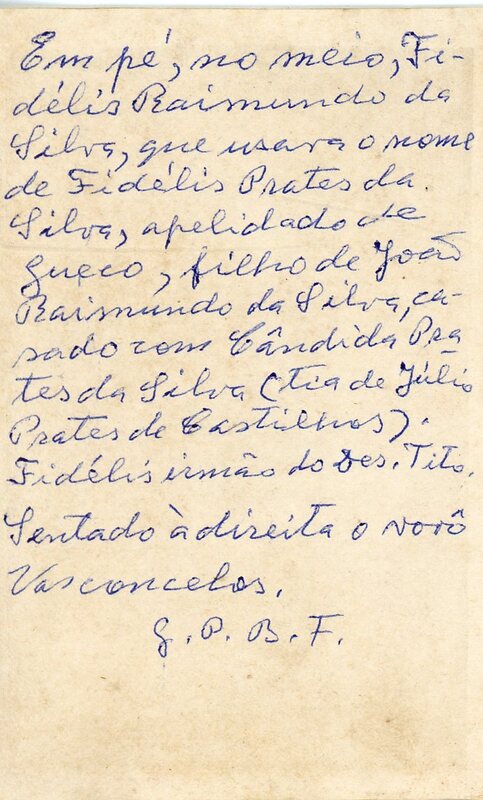 Em pé, no meio, Fi-
délis Raimundo da
Silva, que usava o nome
de Fidélis Prates da
Silva, apelidado de
Gueco, filho de João
Raimundo da Silva, ca-
sado com Cândida Pra-
tes da Silva (tia de Júlio
Prates de Castilhos).
Fidélis irmão do Des. Tito.
Sentado à direita o vovô
Vasconcelos.
G. P. B. F.